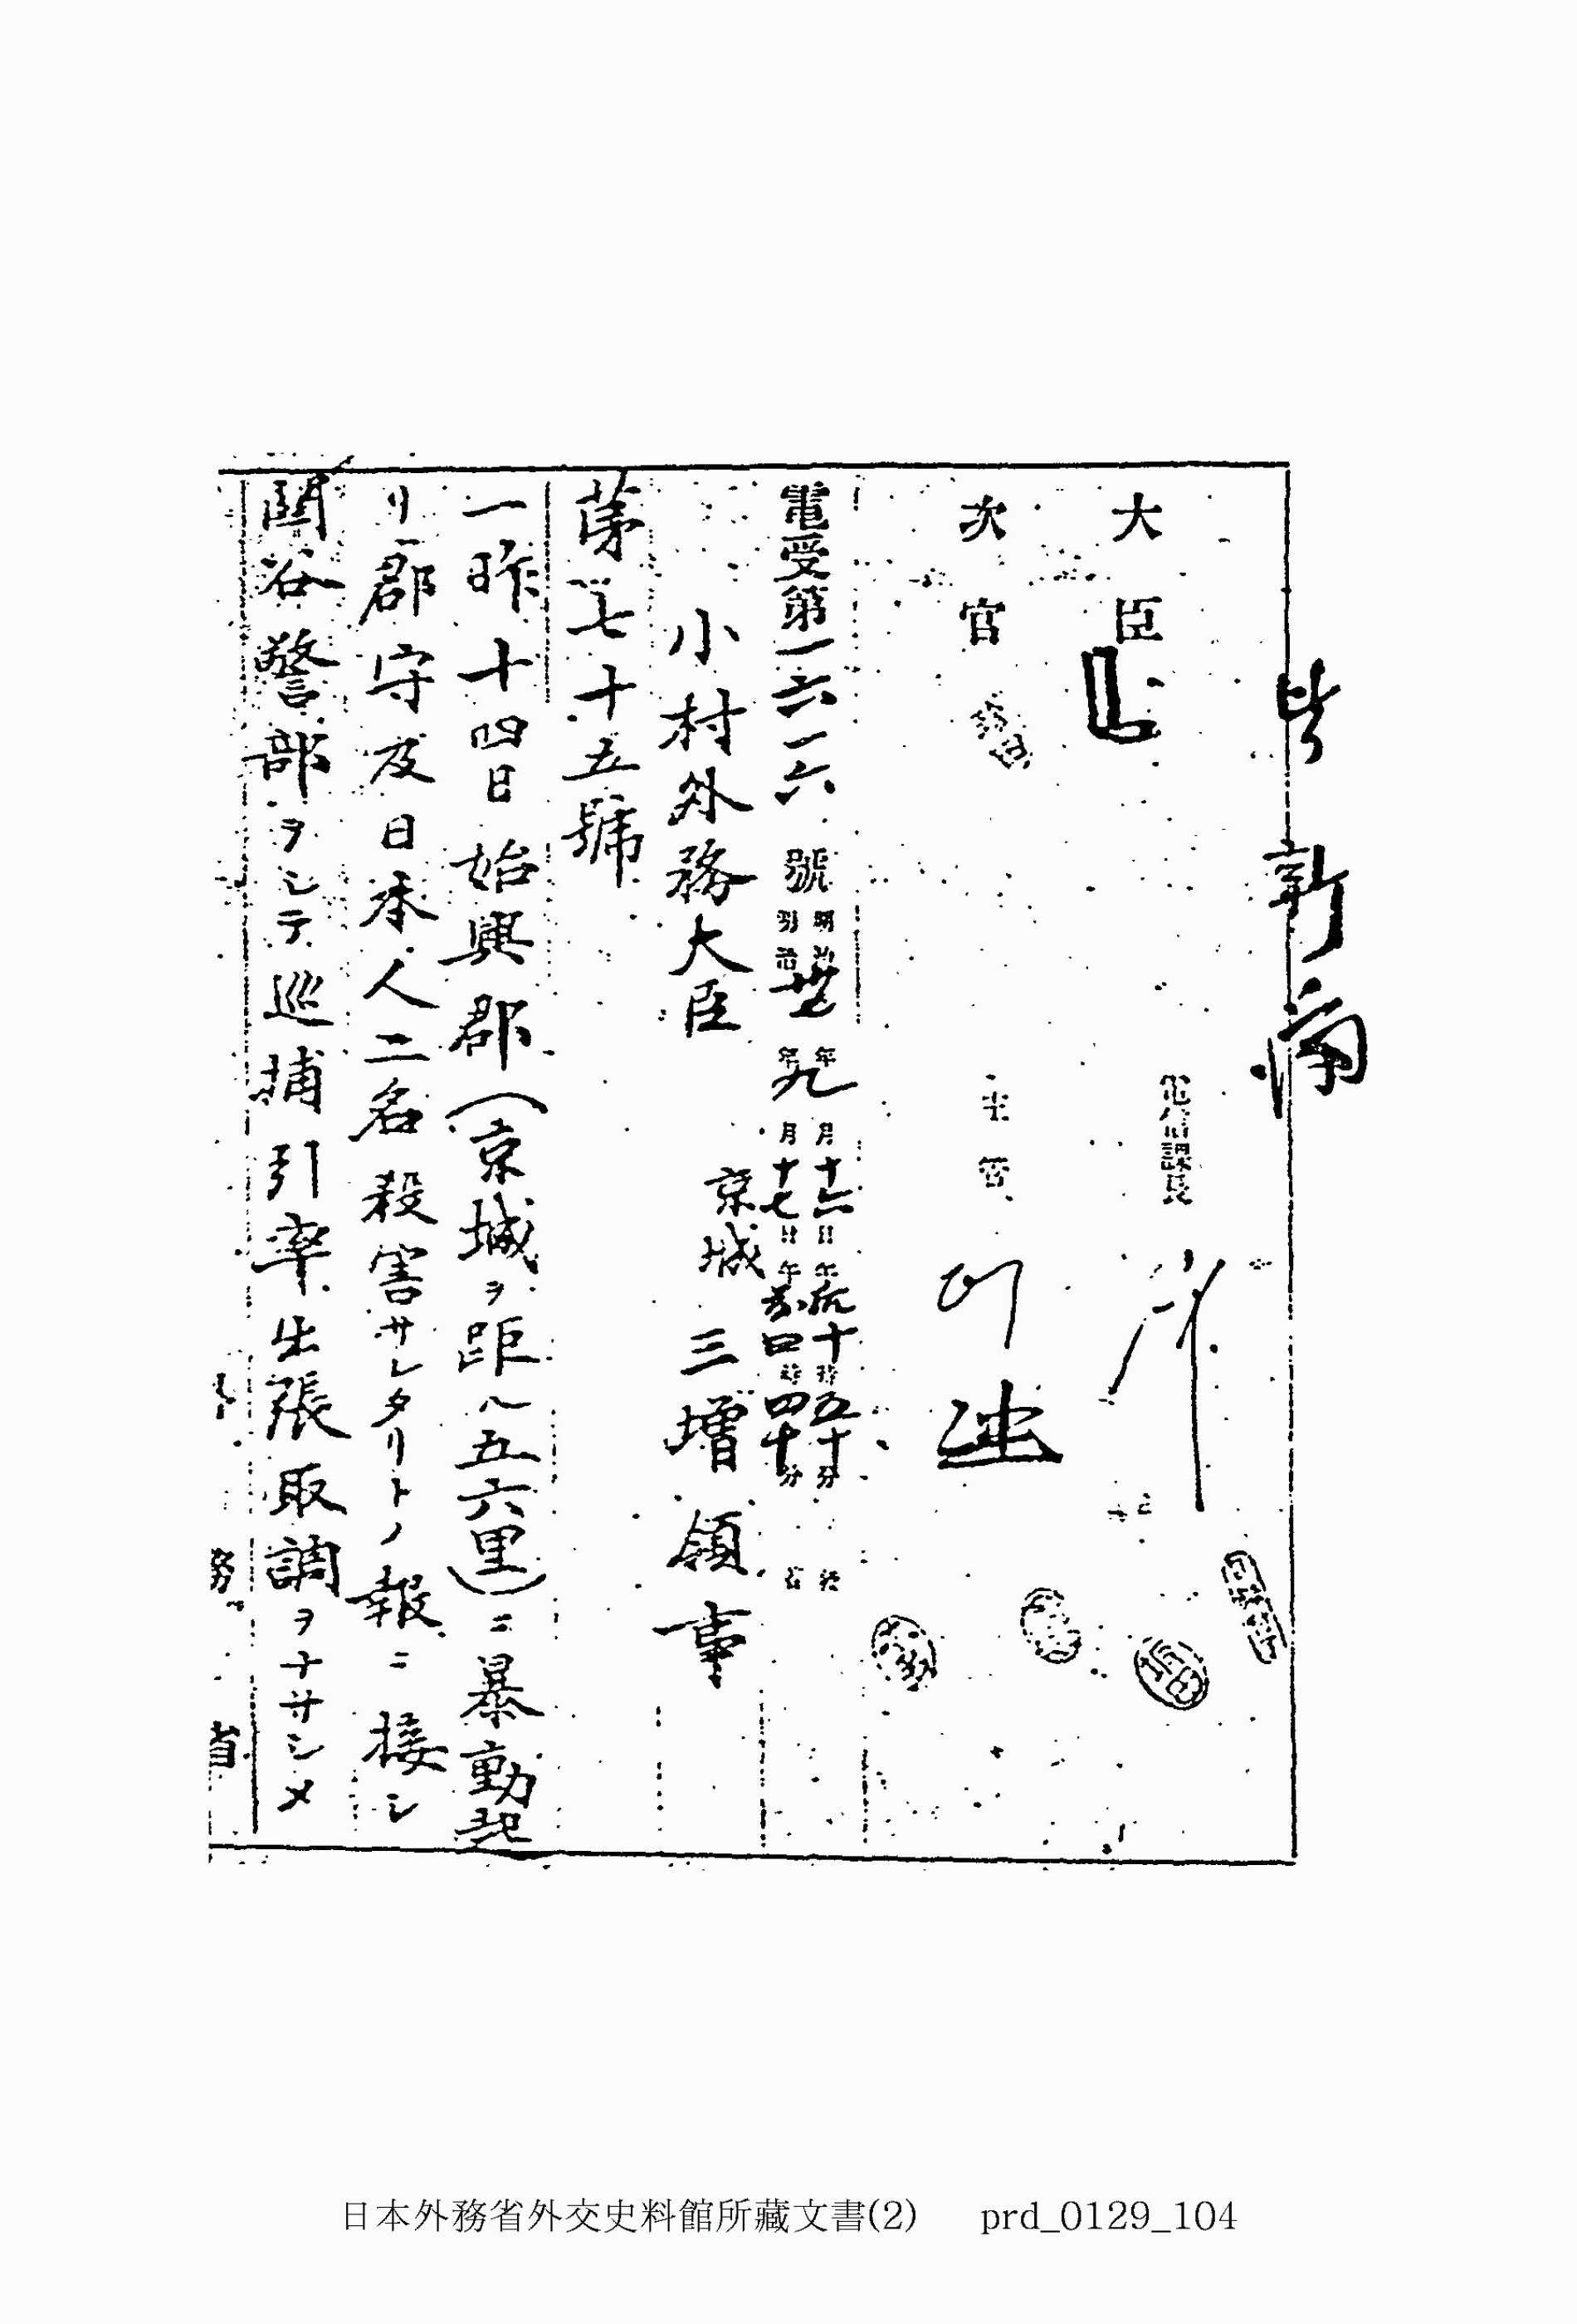 大臣
電信課長
次官
主管
電受第一六一六號
明治卅七年九月十六日午后十時五十分發
明治卅七年九月十七日午前四時四十分着
小村外務大臣
京城 三增領事
第七十五號
一昨十四日始興郡(京城ヲ距ル五六里)ニ暴動起
リ郡守及日本人二名殺害サレタリトノ報ニ接シ
関谷警部ヲシテ巡捕引率出張取調ヲナサシメ
務省
日本外務省外交史料館所藏文書(2) prd_0129_104